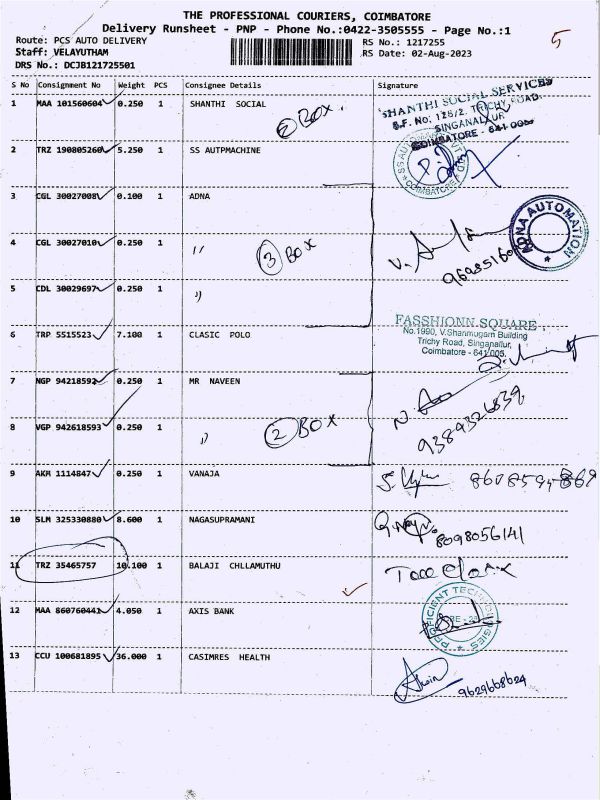 THE PROFESSIONAL COURIERS, COIMBATORE
Delivery Runsheet - PNP - Phone No.:0422-3505555 - Page No.:1
Route: PCS AUTO DELIVERY
RS No.: 1217255
5
Staff: VELAYUTHAM
RS Date: 02-Aug-2023
DRS No.: DCJB121725501
S No Consignment No Weight PCS Consignee Details Signature
1 MAA 101560604 0.250 1 SHANTHI SOCIAL
2 BOX
SHANTHI SOCIAL SERVICES
S.F. No: 125/2, TRICHY ROAD,
SINGANALLUR
COIMBATORE - 641 005
2 TRZ 190805260 5.250 1 SS AUTPMACHINE
3 CGL 30027008 0.100 1 ADNA
ADNA AUTOMATION
4 CGL 30027010 0.250 1 ''
3 BOX
5 CDL 30029697 0.250 1 ''
6 TRP 5515523 7.100 1 CLASIC POLO
FASSHIONN SQUARE
No.1990, V.Shanmugam Building
Trichy Road, Singanallur,
Coimbatore - 641 005.
7 NGP 94218592 0.250 1 MR NAVEEN
9389326839
8 VGP 942618593 0.250 1 ''
2 BOX
9 AKM 1114847 0.250 1 VANAJA
10 SLM 325330880 8.600 1 NAGASUPRAMANI
8098056141
11 TRZ 35465757 10.100 1 BALAJI CHLLAMUTHU
12 MAA 860760441 4.050 1 AXIS BANK
PROFICIENT TECHNOLOGIES
13 CCU 100681895 36.000 1 CASIMRES HEALTH
9629668624